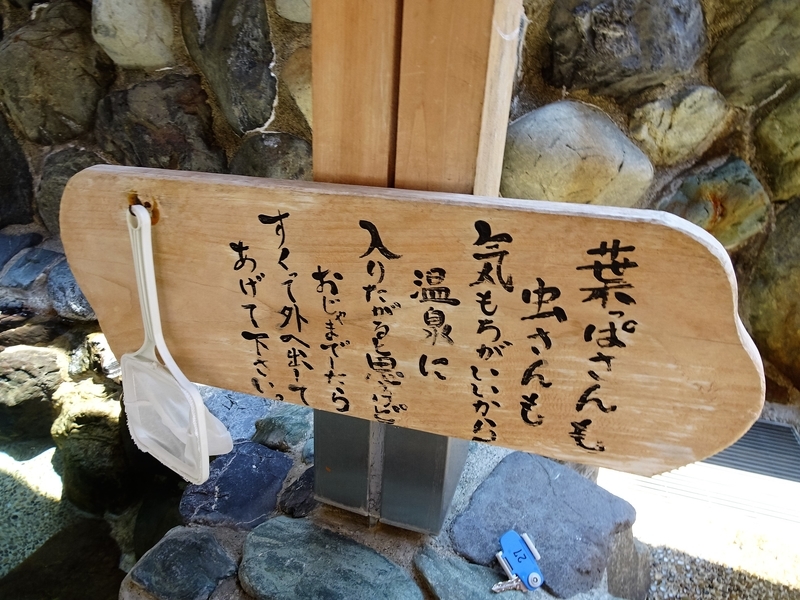 葉っぱさんも
虫さんも
気もちがいいから
温泉に
入りたがると思うけど
おじゃまでしたら
すくって外へ出して
あげて下さい。
27